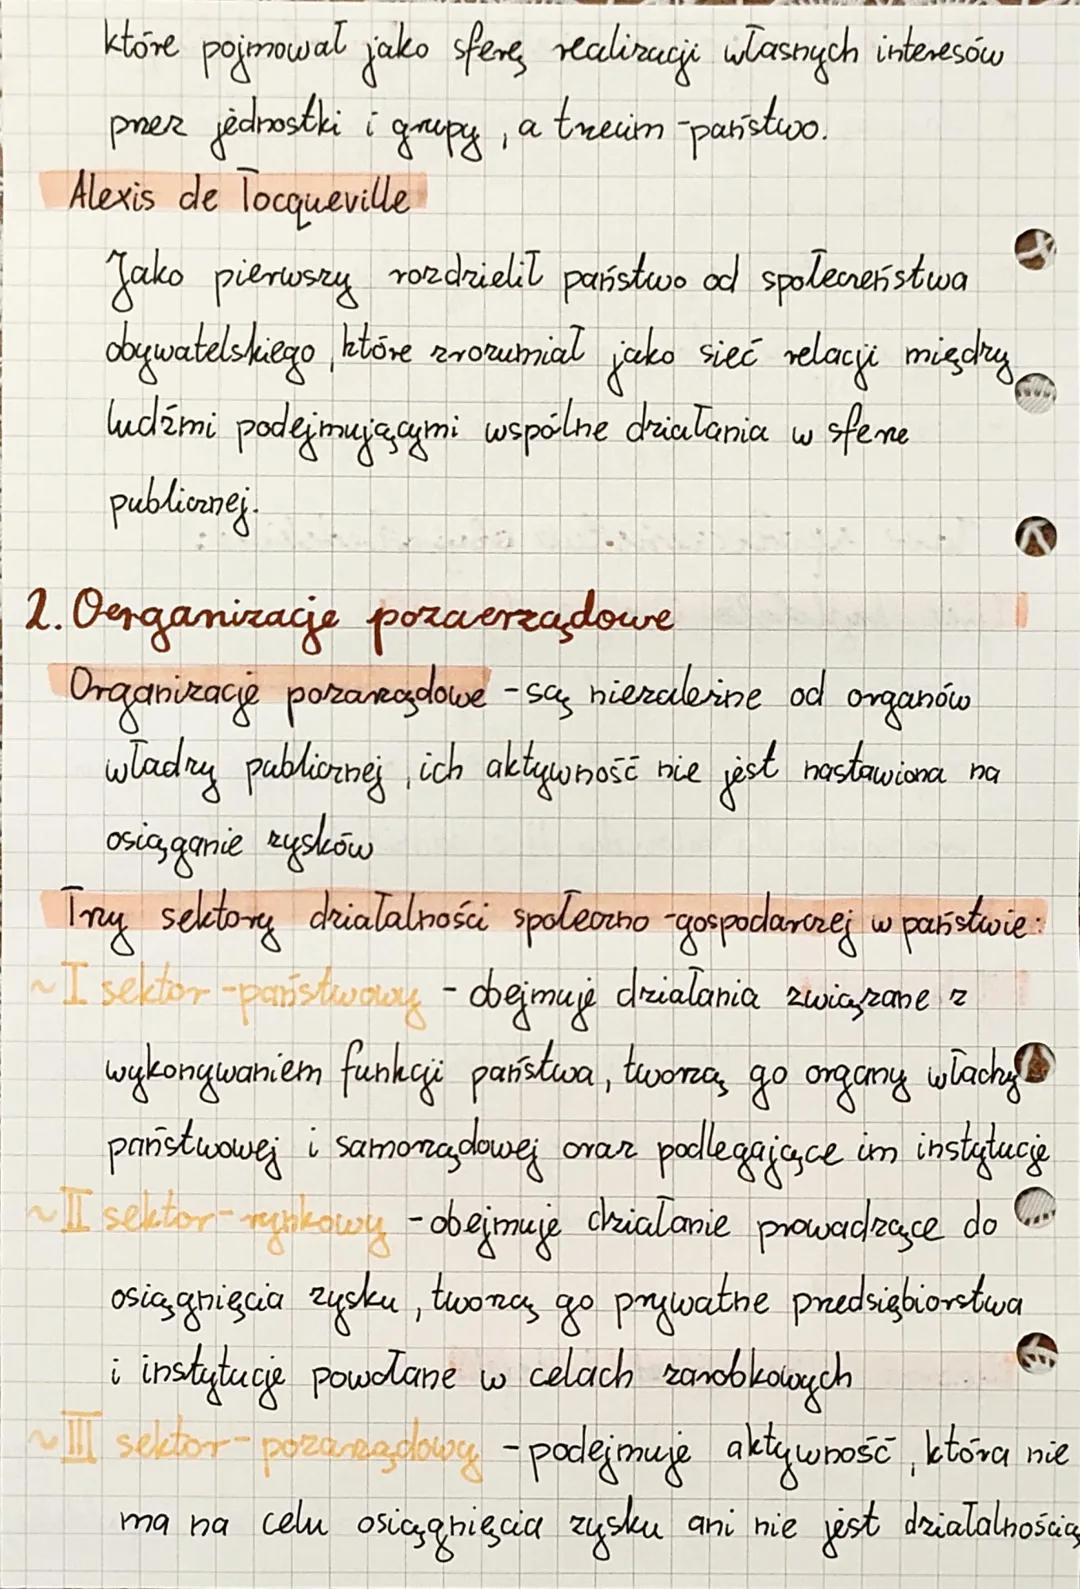 które pojmował jako sferę realizacji własnych interesów
przez jednostki i grupy, a trzecim - państwo.
Alexis de Tocqueville
Jako pierwszy rozdzielił państwo od społeczeństwa
obywatelskiego, które zrozumiał jako sieć relacji między
ludźmi podejmującymi wspólne działania w sferze
publicznej.
2. Oerganizacje pozaerządowe
Organizacje pozarządowe - są niezależne od organów
władzy publicznej, ich aktywność nie jest nastawiona na
osiąganie zysków
Trzy sektory działalności społeczno-gospodarczej w państwie:
~I sektor - państwowy - obejmuje działania związane z
wykonywaniem funkcji państwa, tworzą go organy władzy
państwowej i samorządowej oraz podlegające im instytucje
~II sektor - rynkowy - obejmuje działanie prowadzące do
osiągnięcia zysku, tworzą go prywatne przedsiębiorstwa
i instytucje powołane w celach zarobkowych
~III sektor - pozarządowy - podejmuje aktywność, która nie
ma na celu osiągnięcia zysku ani nie jest działalnością